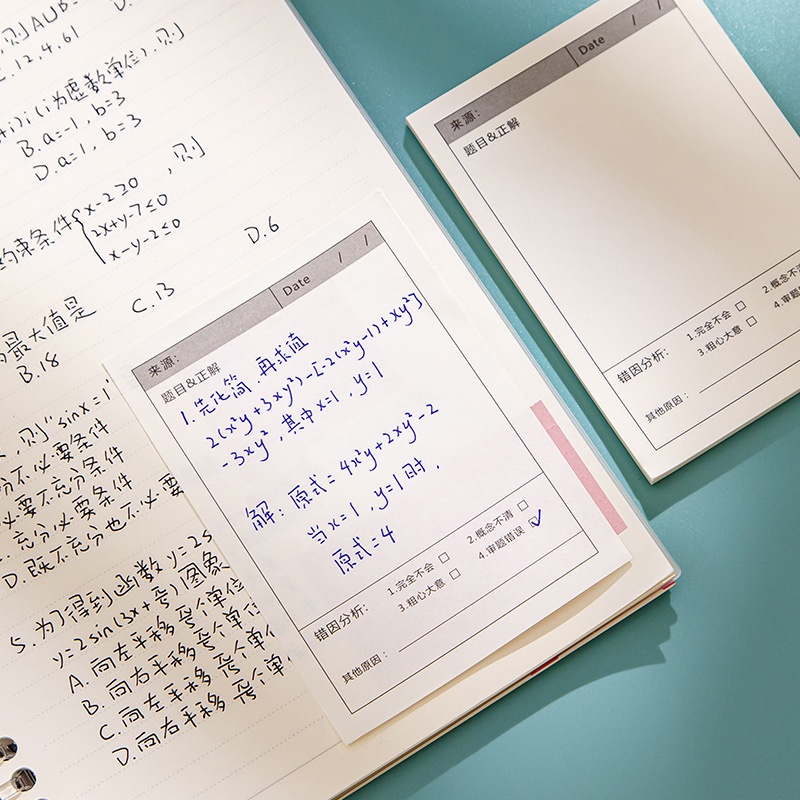 ,则A∪B=
C.12,4,6}
+i);(i为虚数单位),则
B.a=-1, b=3
D.a=1, b=3
约束条件{x-2≥0 ,则
2x+y-7≤0
x-y-2≤0
最大值是
B.18
C.13
D.6
,则"sinx=1
必要条件
必要不充分条件
充分必要条件
D.既不充分也不必要
5.为了得到函数 y=2s
y=2sin(3x+ )图象
A.向左平移 个单位
B.向右平移 个单位
C.向左平移 个单位
D.向右平移 个单
来源:
Date / /
题目&正解
1.先化简,再求值
2(x²y+3xy²)-[-2(x²y-1)+xy²]
-3xy²,其中x=1,y=1
解:原式=4x²y+2xy²-2
当x=1,y=1时,
原式=4
错因分析:
1.完全不会 □
2.概念不清 □
3.粗心大意 □
4.审题错误 ☑
其他原因:
来源:
Date / /
题目&正解
错因分析:
1.完全不会 □
2.概念不
3.粗心大意 □
4.审题
其他原因: